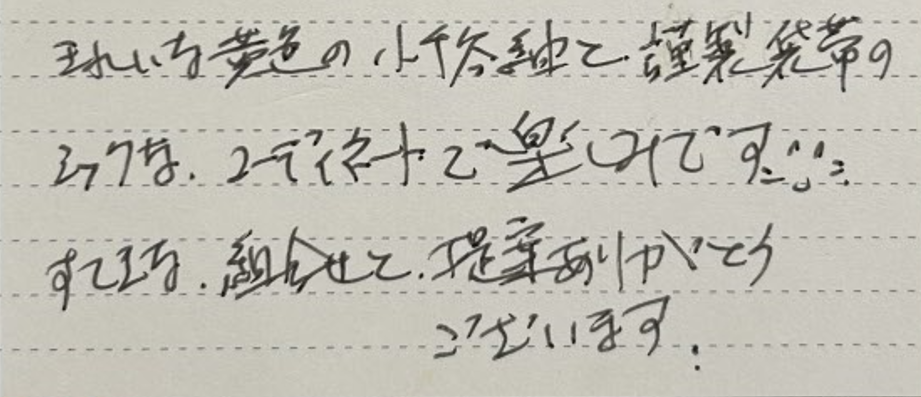 きれいな黄色の小千谷紬と.謹製袋帯の
シックな.コーディネートで楽しみです
すてきな.組合せと.提案ありがとう
ございます.